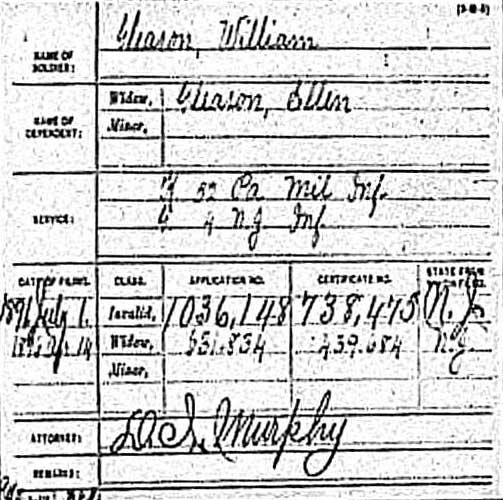 [3-M-8]
NAME OF SOLDIER: Gleason, William
NAME OF DEPENDENT: Widow, Gleason, Ellen
Minor,
SERVICE: 52 Pa Mil Inf.
4 N.J. Inf
DATE OF FILING. CLASS. APPLICATION NO. CERTIFICATE NO. STATE FROM WHICH FILED.
1891 July 1. Invalid, 1036,148 738,475 N.J.
Widow, 651.834 439.684 N.J.
Minor,
ATTORNEY: Murphy
REMARKS: